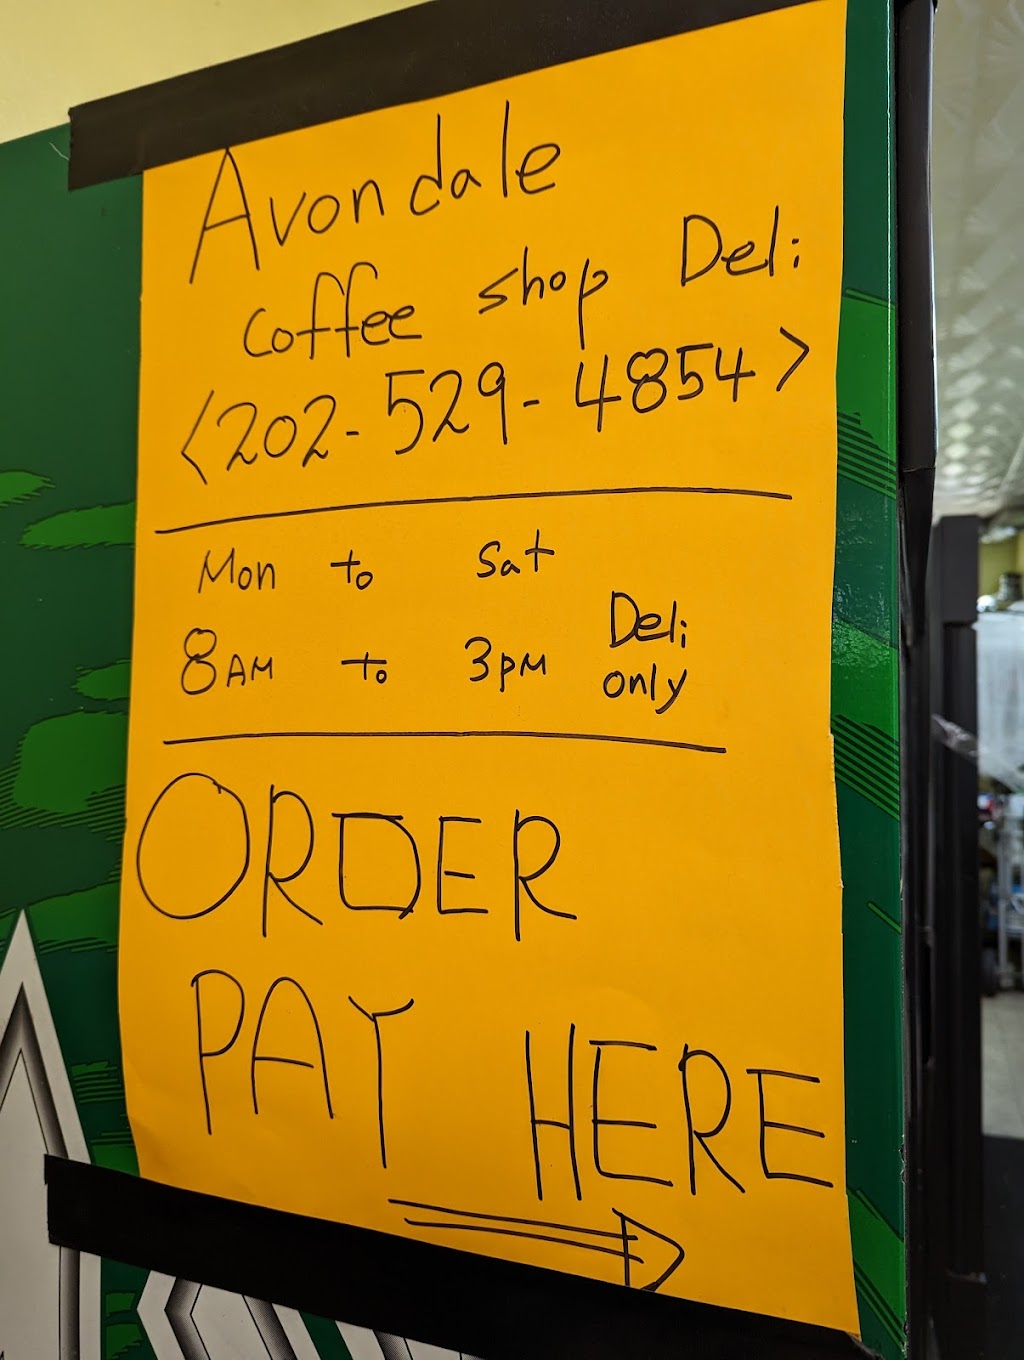 Avondale
coffee shop Deli
<202-529-4854>
Mon to Sat
8AM to 3PM Deli only
ORDER
PAY HERE